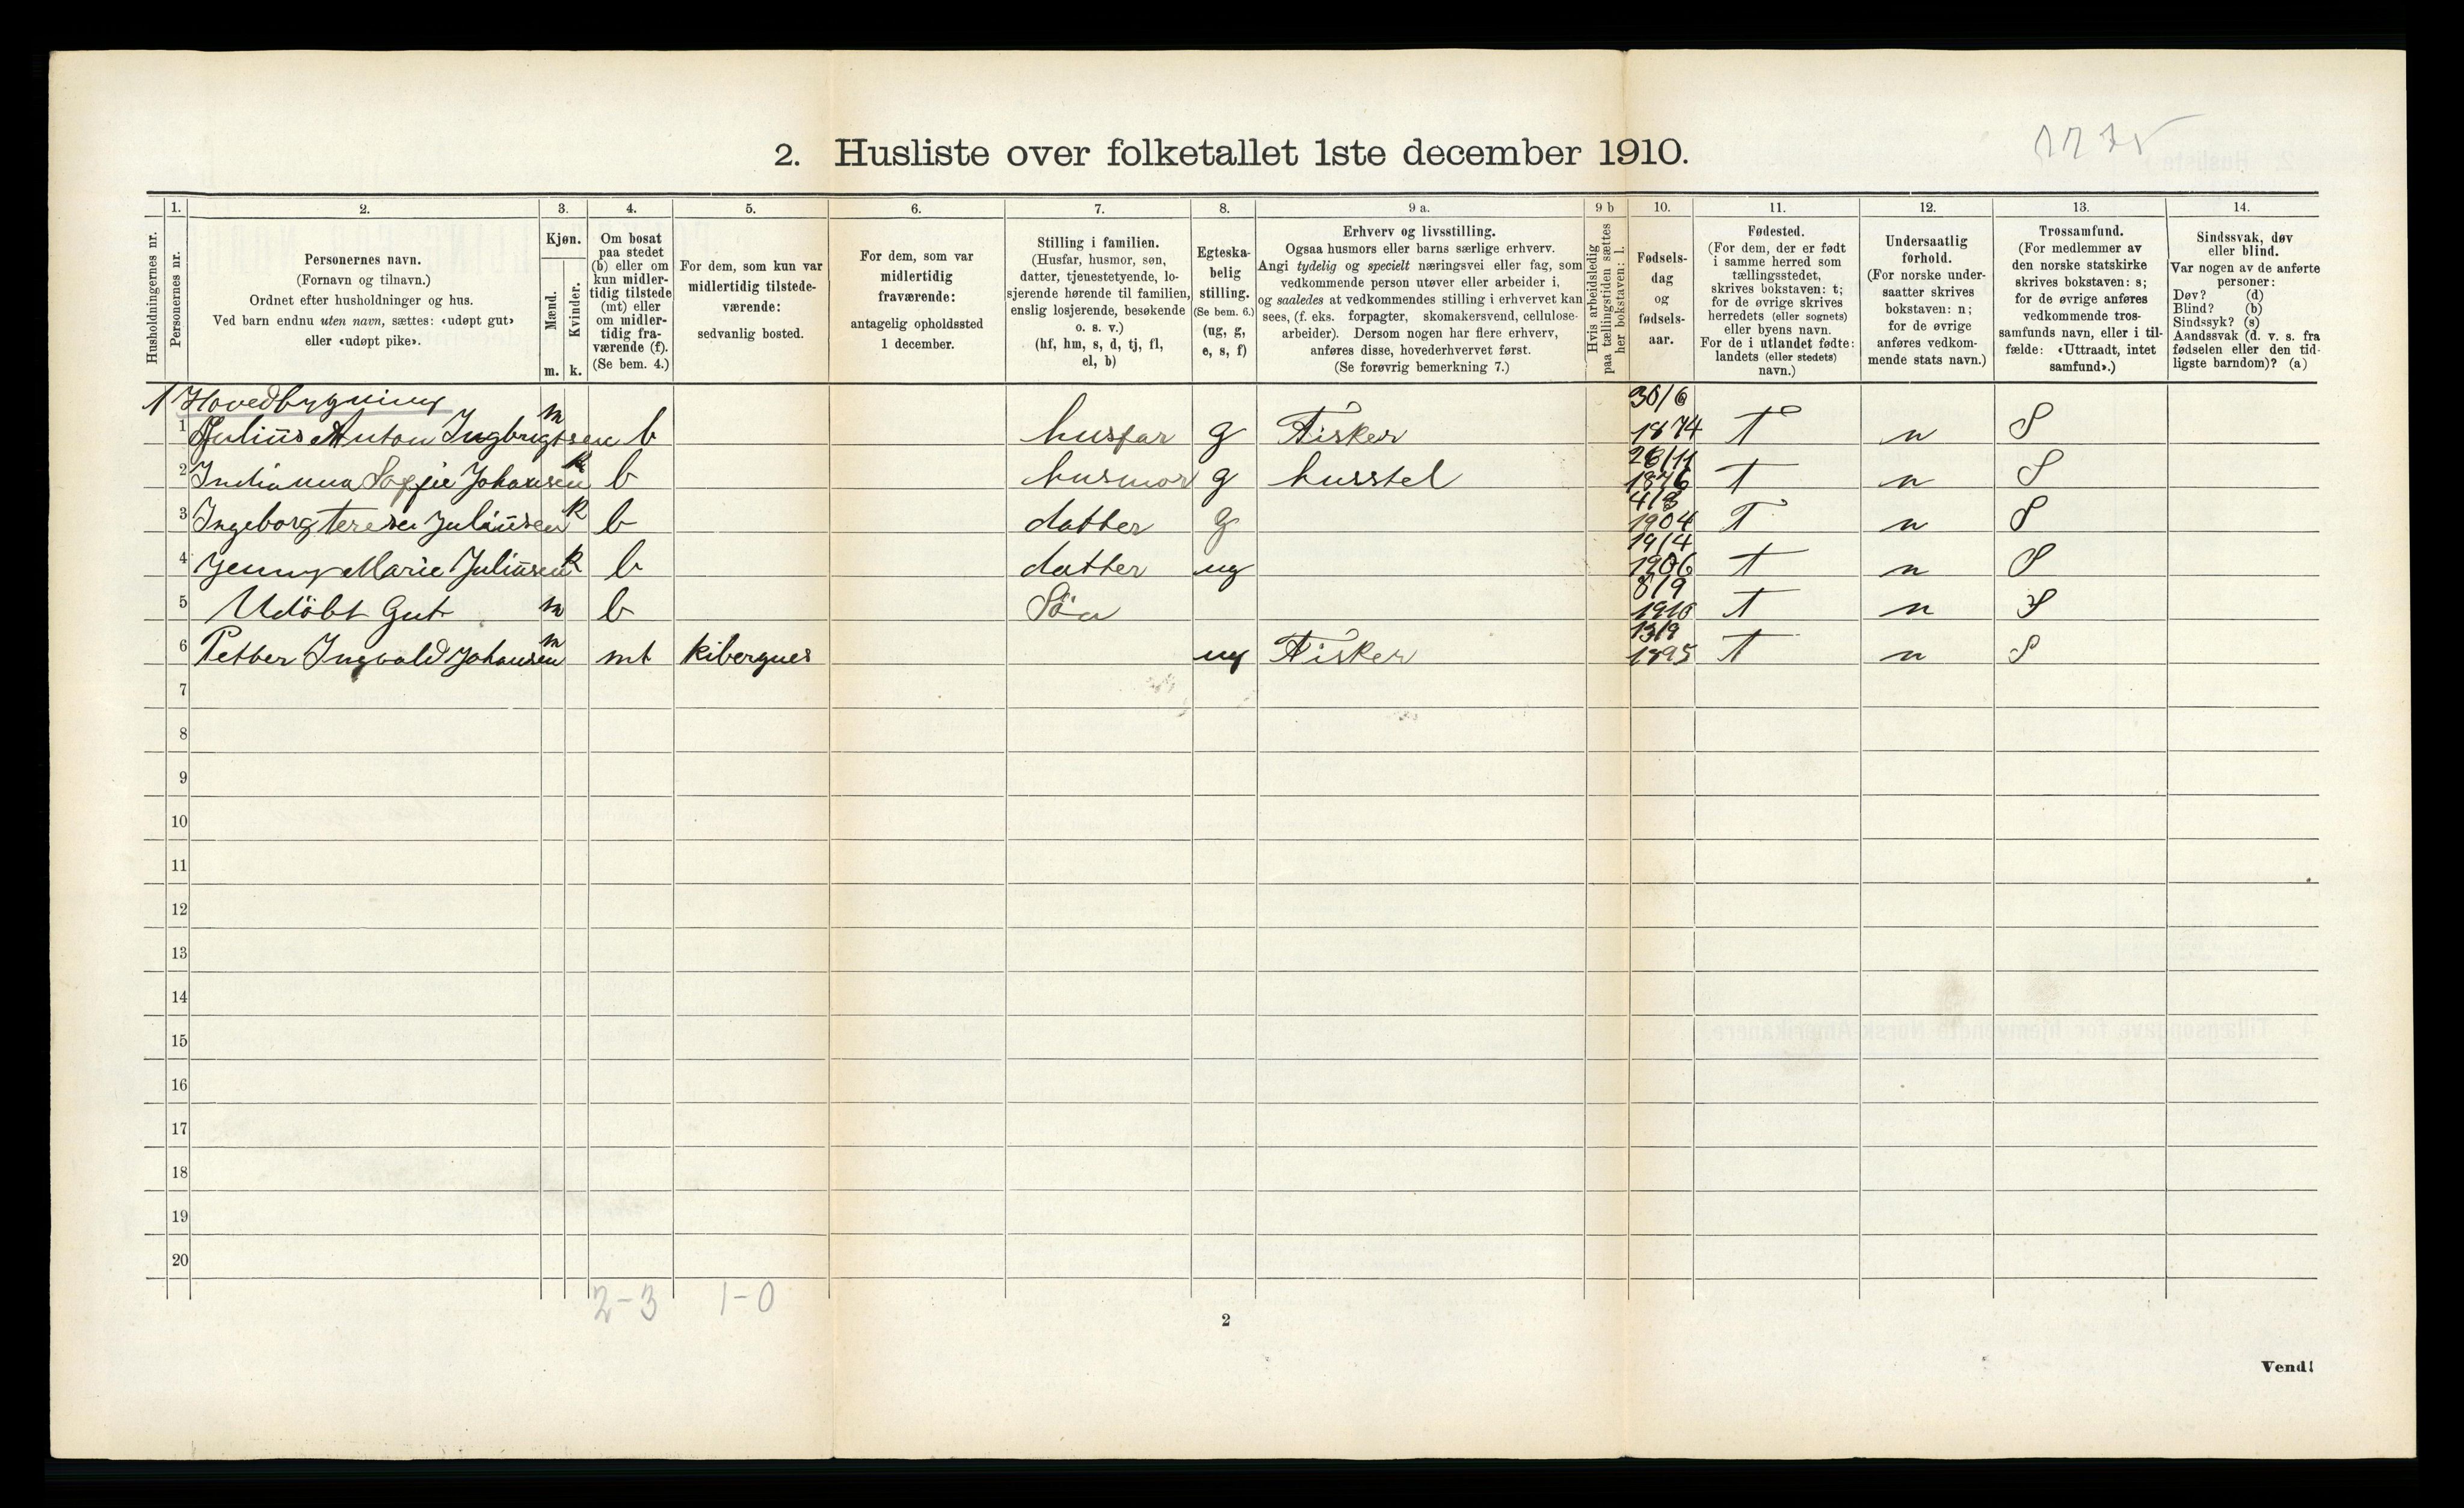 2. Husliste over folketallet 1ste december 1910.
1. 2. 3. 4. 5. 6. 7. 8. 9 a. 9 b 10. 11. 12. 13. 14.
Husholdningernes nr.
Personernes nr.
Personernes navn.
(Fornavn og tilnavn.)
Ordnet efter husholdninger og hus.
Ved barn endnu uten navn, sættes: «udøpt gut»
eller «udøpt pike».
Kjøn.
Mænd.
Kvinder.
m. k.
Om bosat
paa stedet
(b) eller om
kun midler-
tidig tilstede
(mt) eller
om midler-
tidig fra-
værende (f).
(Se bem. 4.)
For dem, som kun var
midlertidig tilstede-
værende:
sedvanlig bosted.
For dem, som var
midlertidig
fraværende:
antagelig opholdssted
1 december.
Stilling i familien.
(Husfar, husmor, søn,
datter, tjenestetyende, lo-
sjerende hørende til familien,
enslig losjerende, besøkende
o. s. v.)
(hf, hm, s, d, tj, fl,
el, b)
Egteska-
belig
stilling.
(Se bem. 6.)
(ug, g,
e, s, f)
Erhverv og livsstilling.
Ogsaa husmors eller barns særlige erhverv.
Angi tydelig og specielt næringsvei eller fag, som
vedkommende person utøver eller arbeider i,
og saaledes at vedkommendes stilling i erhvervet kan
sees, (f. eks. forpagter, skomakersvend, cellulose-
arbeider). Dersom nogen har flere erhverv,
anføres disse, hovederhvervet først.
(Se forøvrig bemerkning 7.)
Hvis arbeidsledig
paa tællingstiden sættes
her bokstaven: l.
Fødsels-
dag
og
fødsels-
aar.
Fødested.
(For dem, der er født
i samme herred som
tællingsstedet,
skrives bokstaven: t;
for de øvrige skrives
herredets (eller sognets)
eller byens navn.
For de i utlandet fødte:
landets (eller stedets)
navn.)
Undersaatlig
forhold.
(For norske under-
saatter skrives
bokstaven: n;
for de øvrige
anføres vedkom-
mende stats navn.)
Trossamfund.
(For medlemmer av
den norske statskirke
skrives bokstaven: s;
for de øvrige anføres
vedkommende tros-
samfunds navn, eller i til-
fælde: «Uttraadt, intet
samfund».)
Sindssvak, døv
eller blind.
Var nogen av de anførte
personer:
Døv? (d)
Blind? (b)
Sindssyk? (s)
Aandssvak (d. v. s. fra
fødselen eller den tid-
ligste barndom)? (a)
1 Hovedbygning
1 Julius Anton Ingbrigtsen m b husfar g Fisker 30/6 1874 T n S
2 Indianna Sofie Johansen k b husmor g husstel 1876 T n S
3 Ingeborg teresea Juliusen k b datter g 4/8 1904 T n S
4 Jenny Marie Juliusen k b datter ug 19/4 1906 T n S
5 Udöbt Gut m b Sön 8/9 1910 T n S
6 Petter Ingvald Johansen m mt Kibergnes ug Fisker 13/9 1895 T n S
7
8
9
10
11
12
13
14
15
16
17
18
19
20
2-3 1-0
2
Vend!